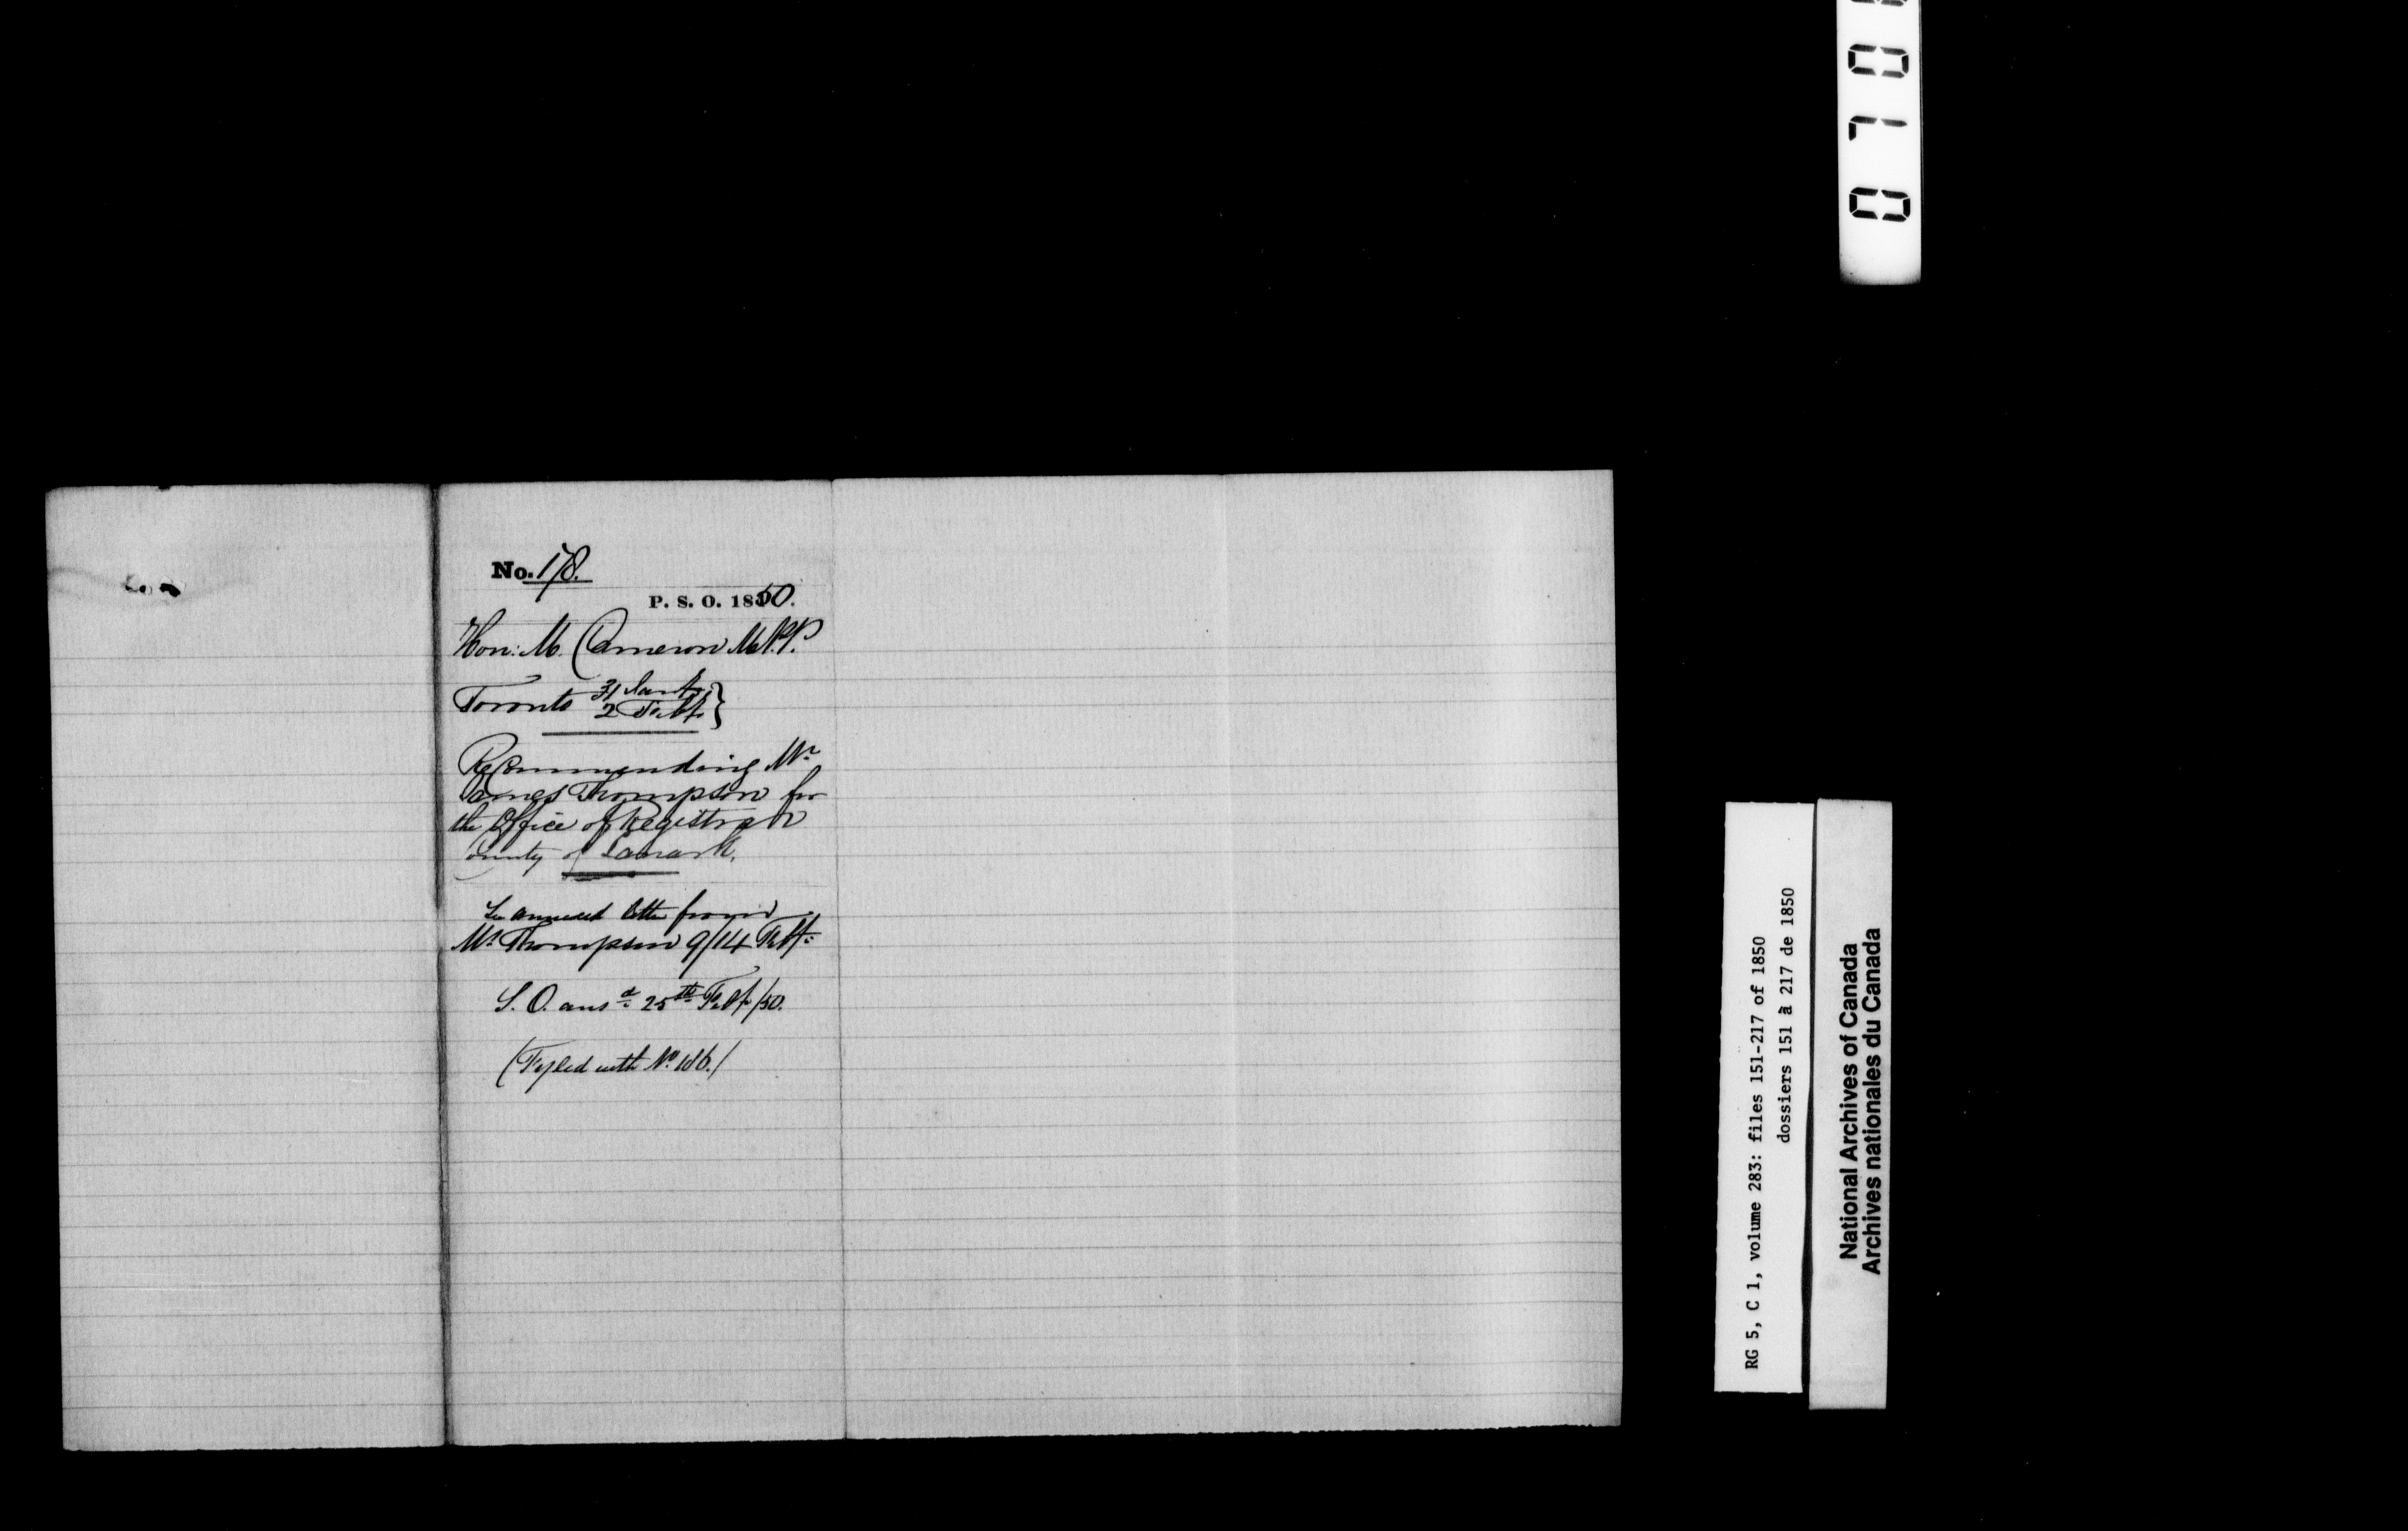 No. 178.
P. S. O. 1850.
Hon: M. Cameron M.P.P.
Toronto 31 Jany.
2 Feby. }
Recommending Mr
James Thompson for
the Office of Registrar
County of Lanark.
See annexed letter from
Mr Thompson 9/14 Feby:
S. O. ansd 25th Feby/50.
(Fyled with No. 186.)
070
RG 5, C 1, volume 283: files 151-217 of 1850
dossiers 151 à 217 de 1850
National Archives of Canada
Archives nationales du Canada